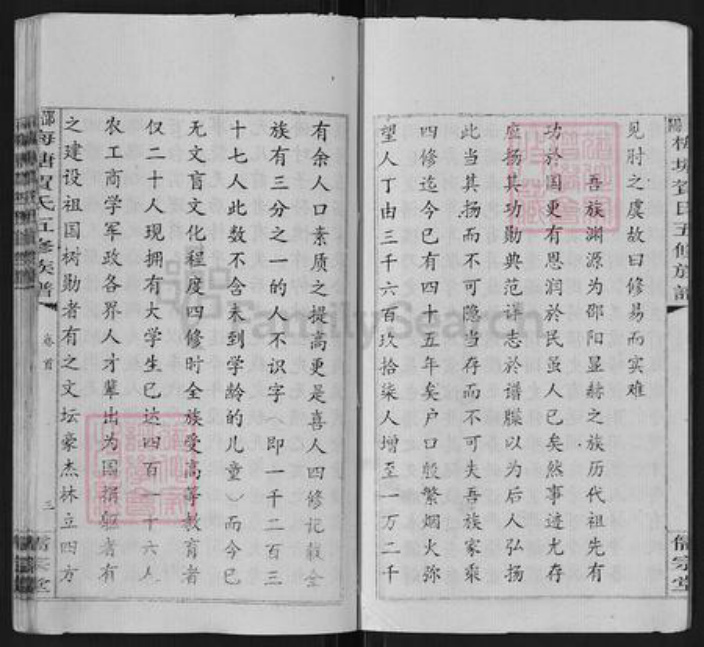 见肘之虞故曰修易而实难
吾族渊源为邵阳显赫之族历代祖先有
功於国更有恩润於民虽人已矣然事迹尤存
应扬其功勋典范详志於谱牒以为后人弘扬
此当其扬而不可隐当存而不可失吾族家乘
四修迄今已有四十五年矣户口殷繁烟火弥
望人丁由三千六百玖拾柒人增至一万二千
儒宗堂
有余人口素质之提高更是喜人四修记载全
族有三分之一的人不识字（即一千二百三
十七人此数不含未到学龄的儿童）而今已
无文盲文化程度四修时全族受高等教育者
仅二十人现拥有大学生已达四百一十六人
农工商学军政各界人才辈出为国捐躯者有
之建设祖国树勋者有之文坛豪杰林立四方
贺氏五修族谱
卷首
三
儒宗堂
FamilySearch